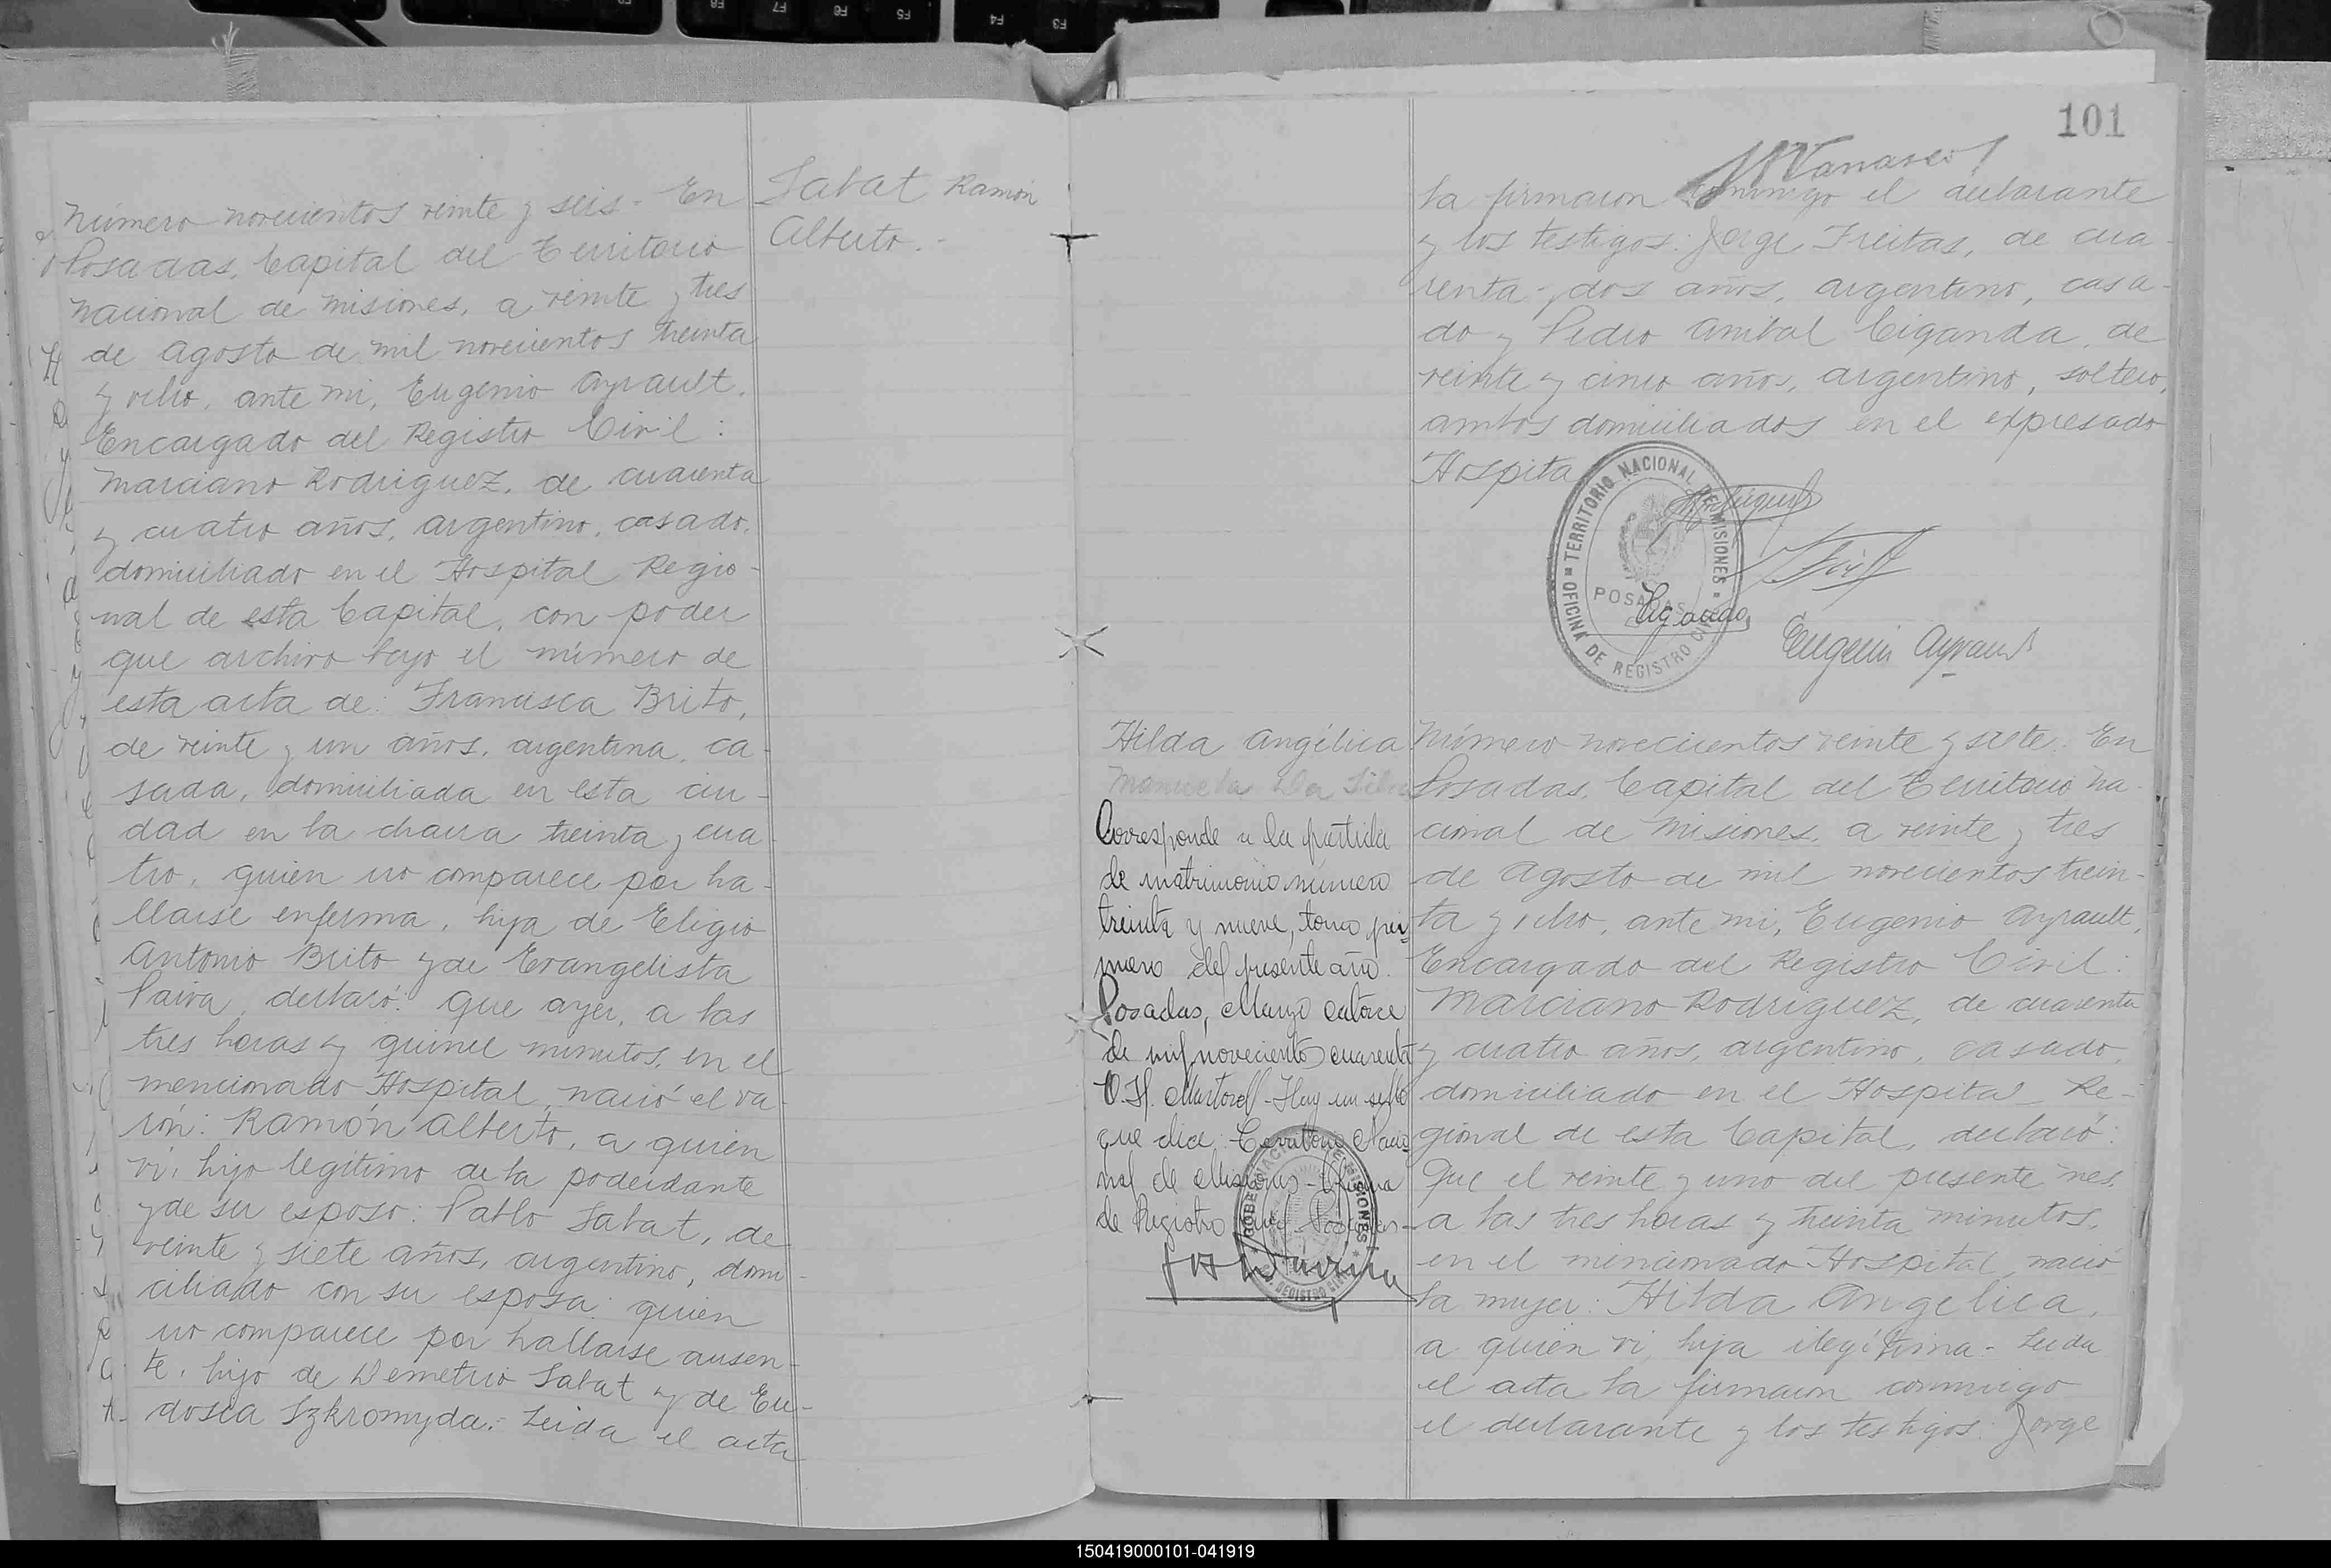 Número novecientos veinte y seis - En
Posadas, Capital del Territorio
nacional de Misiones, a veinte y tres
de Agosto de mil novecientos treinta
y ocho, ante mi, Eugenio Ayrault,
Encargado del Registro Civil:
Marciano Rodriguez, de cuarenta
y cuatro años, argentino, casado,
domiciliado en el Hospital Regio-
nal de esta Capital, con poder
que archivo bajo el número de
esta acta de: Francisca Brito,
de veinte y un años, argentina, ca-
sada, domiciliada en esta ciu-
dad en la chacra treinta y cua-
tro, quien no comparece por ha-
llarse enferma, hija de Eligio
Antonio Brito y de Evangelista
Paiva, declaró: Que ayer, a las
tres horas y quince minutos, en el
mencionado Hospital, nació el va-
rón: Ramón Alberto, a quien
vi, hijo legítimo de la poderdante
y de su esposo: Pablo Sabat, de
veinte y siete años, argentino, domi-
ciliado con su esposa: quien
no comparece por hallarse ausen-
te, hijo de Demetrio Sabat y de Eu-
dosca Szkromyda.- Leida el acta
Sabat Ramón
Alberto.-
101
la firmaron conmigo el declarante
y los testigos: Jorge Freitas, de cua-
renta y dos años, argentino, casa-
do y Pedro Anibal Ciganda, de
veinte y cinco años, argentino, soltero,
ambos domiciliados en el expresado
Hospital
TERRITORIO NACIONAL DE MISIONES
POSADAS
OFICINA DE REGISTRO CIVIL
Ciganda
Eugenio Ayrault
Hilda Angélica
Manuela Da Silva
Corresponde a la partida
de matrimonio número
treinta y nueve, tomo pri-
mero del presente año.
Posadas, Marzo catorce
de mil novecientos cuarenta
O. H. Martorell - Hay un sello
que dice: Territorio Nacio-
nal de Misiones - Oficina
de Registro Civil Posadas-
Número novecientos veinte y siete. En
Posadas, Capital del Territorio na-
cional de Misiones, a veinte y tres
de Agosto de mil novecientos trein-
ta y ocho, ante mi, Eugenio Ayrault,
Encargado del Registro Civil:
Marciano Rodriguez, de cuarenta
y cuatro años, argentino, casado,
domiciliado en el Hospital Re-
gional de esta Capital, declaró:
Que el veinte y uno del presente mes,
a las tres horas y treinta minutos,
en el mencionado Hospital, nació
la mujer: Hilda Angelica,
a quien vi, hija ilegítima.- Leida
el acta la firmaron conmigo
el declarante y los testigos: Jorge
150419000101-041919